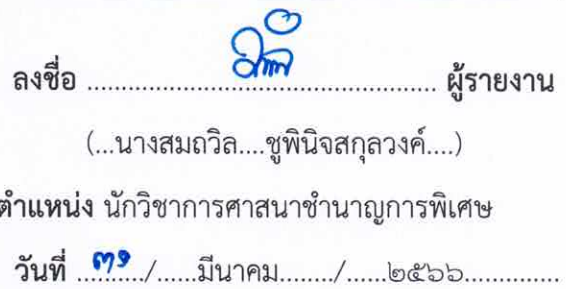 ลงชื่อ ................................................ ผู้รายงาน
(...นางสมถวิล....ชูพินิจสกุลวงค์....)
ตำแหน่ง นักวิชาการศาสนาชำนาญการพิเศษ
วันที่ ..๓๑../......มีนาคม......../......๒๕๖๖..............